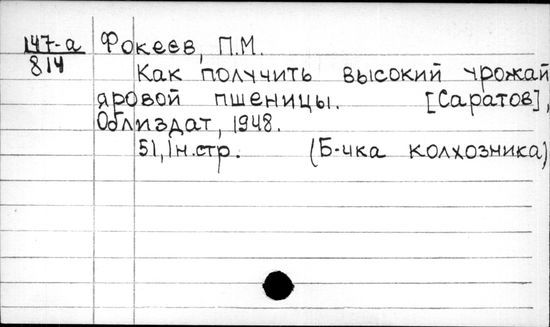 147-а Фокеев, П.М.
814
Как получить высокий урожай
яровой пшеницы. [Саратов],
Облиздат, 1948.
51, 1н.стр. (Б-чка колхозника)